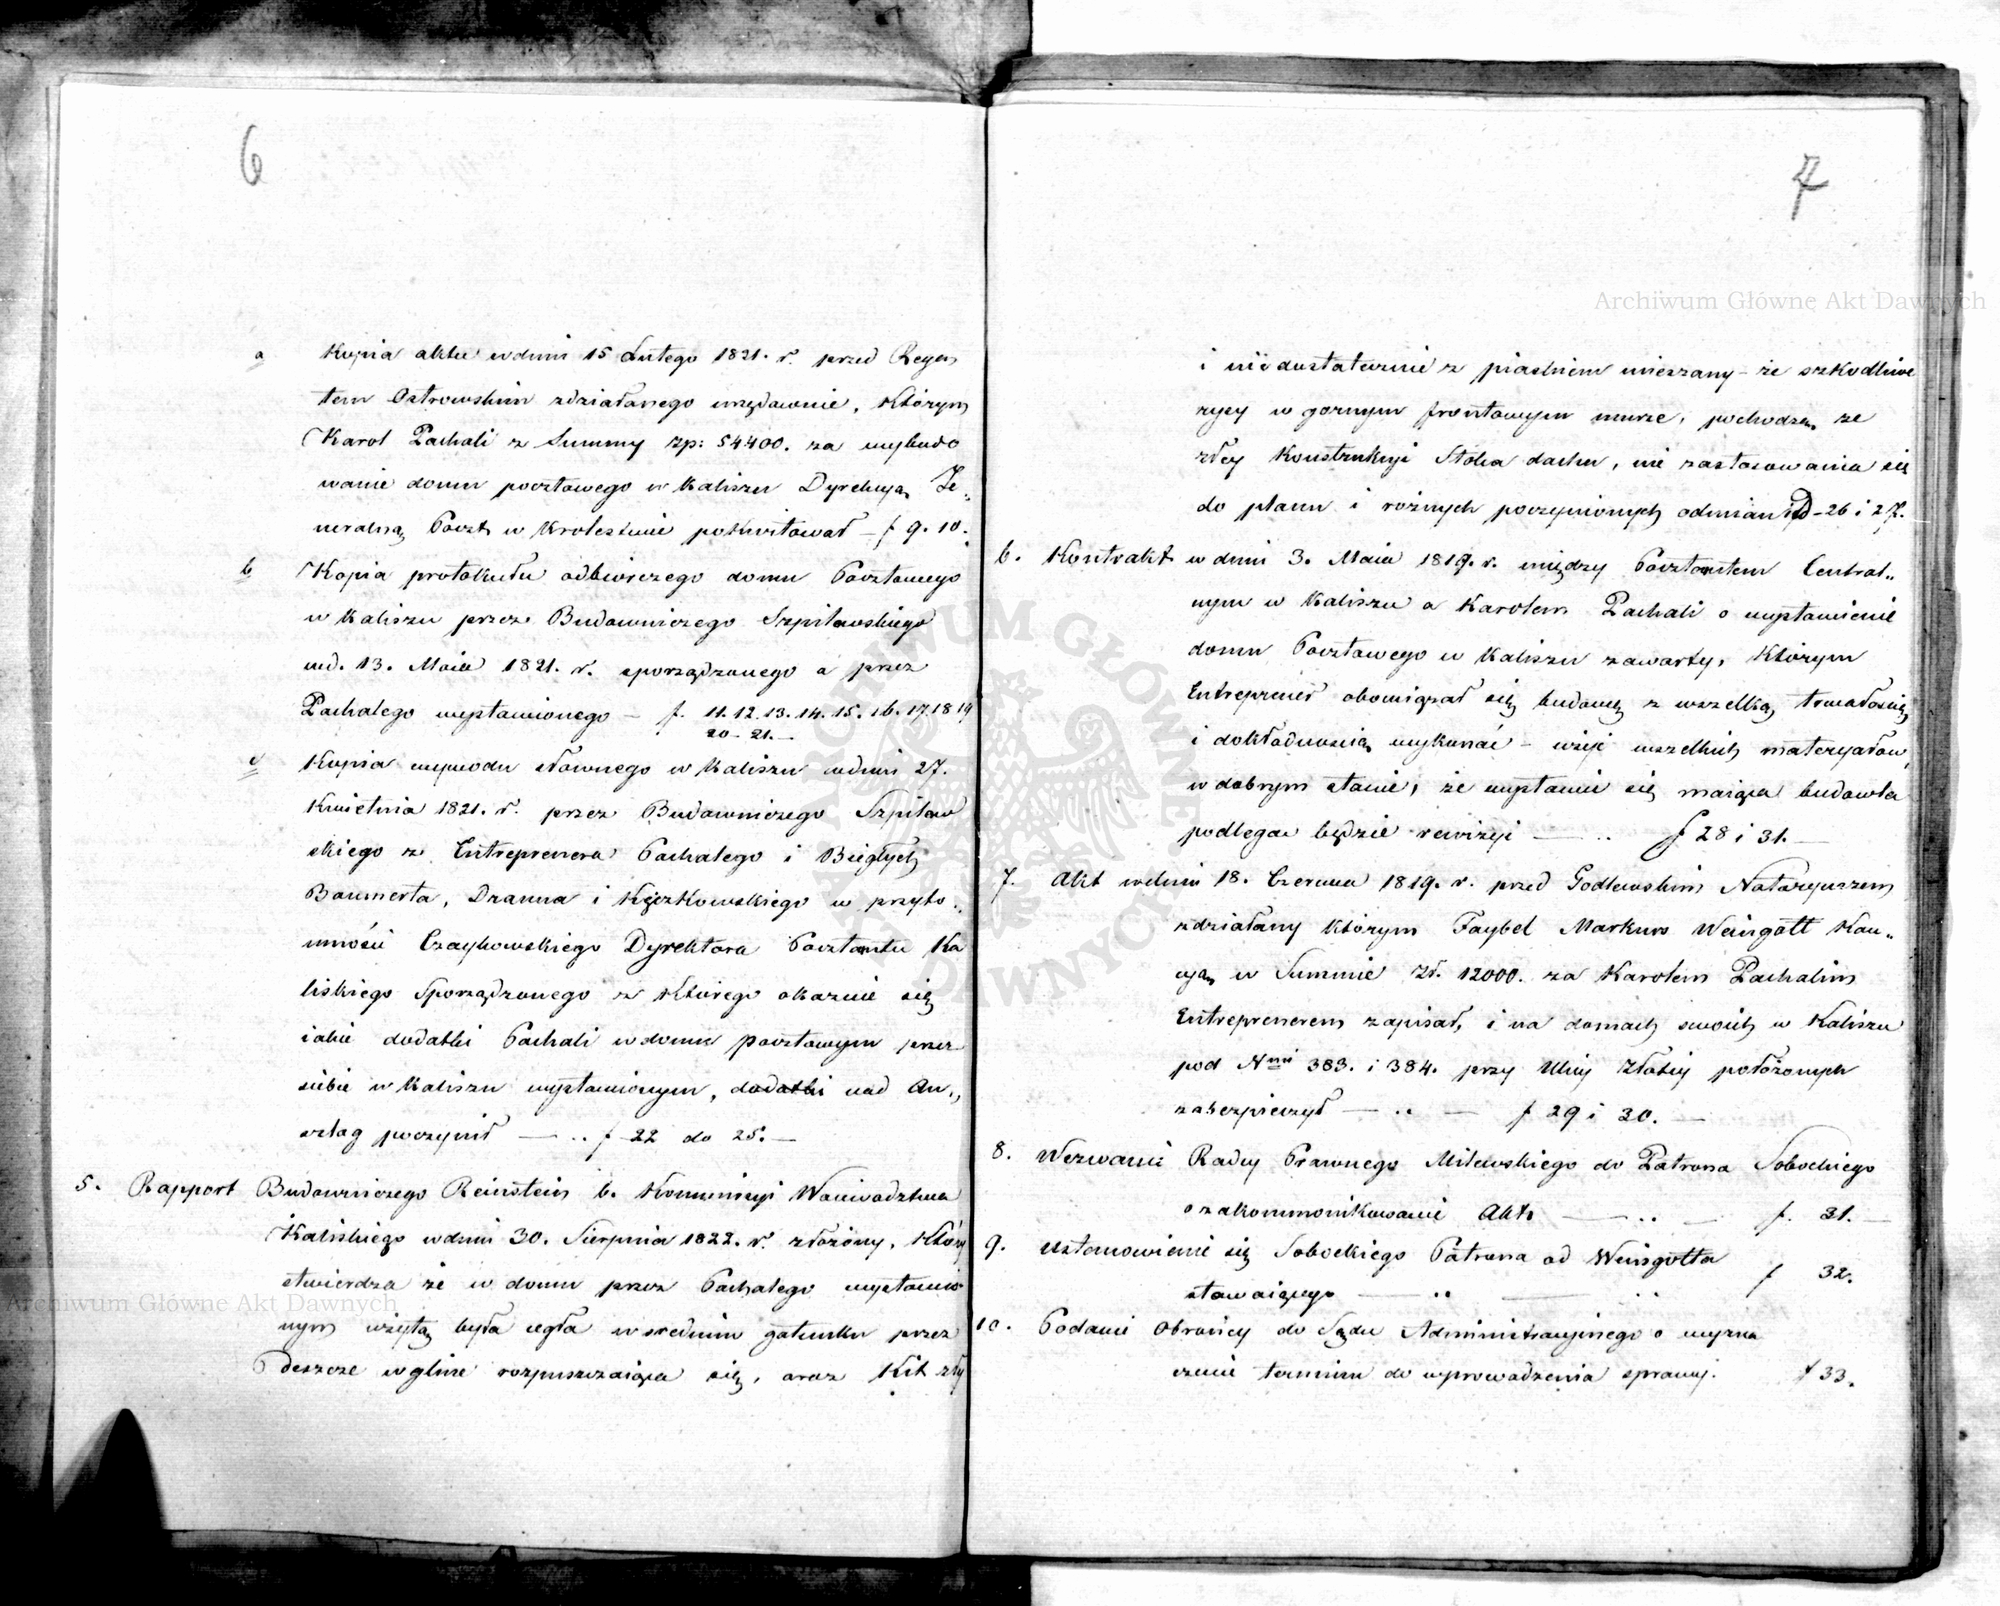 6
a Kopia aktu w dniu 15 Lutego 1821. r. przed Regen
tem Ostrowskim zdziałanego urzędownie, którym
Karol Pachali z Summy zp: 54400. za wybudo
wanie domu pocztowego w Kaliszu Dyrekcyą Je„
neralną Poczt w Krolestwie pokwitował – f 9. 10.
b Kopia protokułu odbiorczego domu Pocztowego
w Kaliszu przez Budowniczego Szpilowskiego
w d. 13. Maia 1821. r. sporządzonego a przez
Pachalego wystawionego – f. 11. 12. 13. 14. 15. 16. 17. 18 19
20. 21. –
c Kopia wywodu słownego w Kaliszu w dniu 27.
Kwietnia 1821. r. przez Budowniczego Szpilow
skiego z Entreprenera Pachalego i Biegłych
Baumerta, Dranna i Kęczkowskiego w przyto„
mności Czaykowskiego Dyrektora Pocztamtu Ka
liskiego Sporządzonego z którego okazuie się
iakie dodatki Pachali w domu pocztowym przez
siebie w Kaliszu wystawionym, dodatki nad An„
szlag poczynił — .. f 22 do 25. —
5. Rapport Budowniczego Reinstein b. Kommissyi Woiewodztwa
Kaliskiego w dniu 30. Sierpnia 1822. r. złożony, który
stwierdza że w domu przez Pachalego wystawio
nym wziętą była cegła w srednim gatunku przez
Deszcze w glinę rozpuszczaiąca się, oraz Kit zły
7
i niedostatecznie z piaskiem mieszany – że szkodliwe
rysy w gornym frontowym murze, pochodzą ze
złey Konstrukcyi Stolca dachu, nie zastosowania się
do planu i rożnych poczynionych odmian – 26 i 27.
6. Kontrakt w dniu 3. Maia 1819. r. między Pocztamtem Central„
nym w Kaliszu a Karolem Pachali o wystawienie
domu Pocztowego w Kaliszu zawarty, którym
Entreprener obowiązał się budowę z wszelką trwałością
i dokładnością wykonać – użyć wszelkich materyałow
w dobrym stanie, że wystawić się maiąca budowla
podlegać będzie rewizyi — .. f 28 i 31. —
7. Akt w dniu 18. Czerwca 1819. r. przed Godlewskim Notaryuszem
zdziałany którym Faybel Markus Weingott Kau„
cyą w Summie Zł. 12000. za Karolem Pachalim
Entreprenerem zapisał, i na domach swoich w Kaliszu
pod Nmi 383. i 384. przy Ulicy Złotey położonych
zabezpieczył — .. — f 29 i 30. —
8. Wezwanie Radcy Prawnego Milewskiego do Patrona Sobockiego
o zakommonikowanie Akt — .. — f. 31. —
9. Ustanowienie się Sobockiego Patrona od Weingotta
stawaiącego — .. — .. f 32.
10. Podanie Obrońcy do Sądu Administracyinego o wyzna
czenie terminu do wprowadzenia sprawy. f 33.
Archiwum Główne Akt Dawnych
Archiwum Główne Akt Dawnych
ARCHIWUM GŁÓWNE AKT DAWNYCH